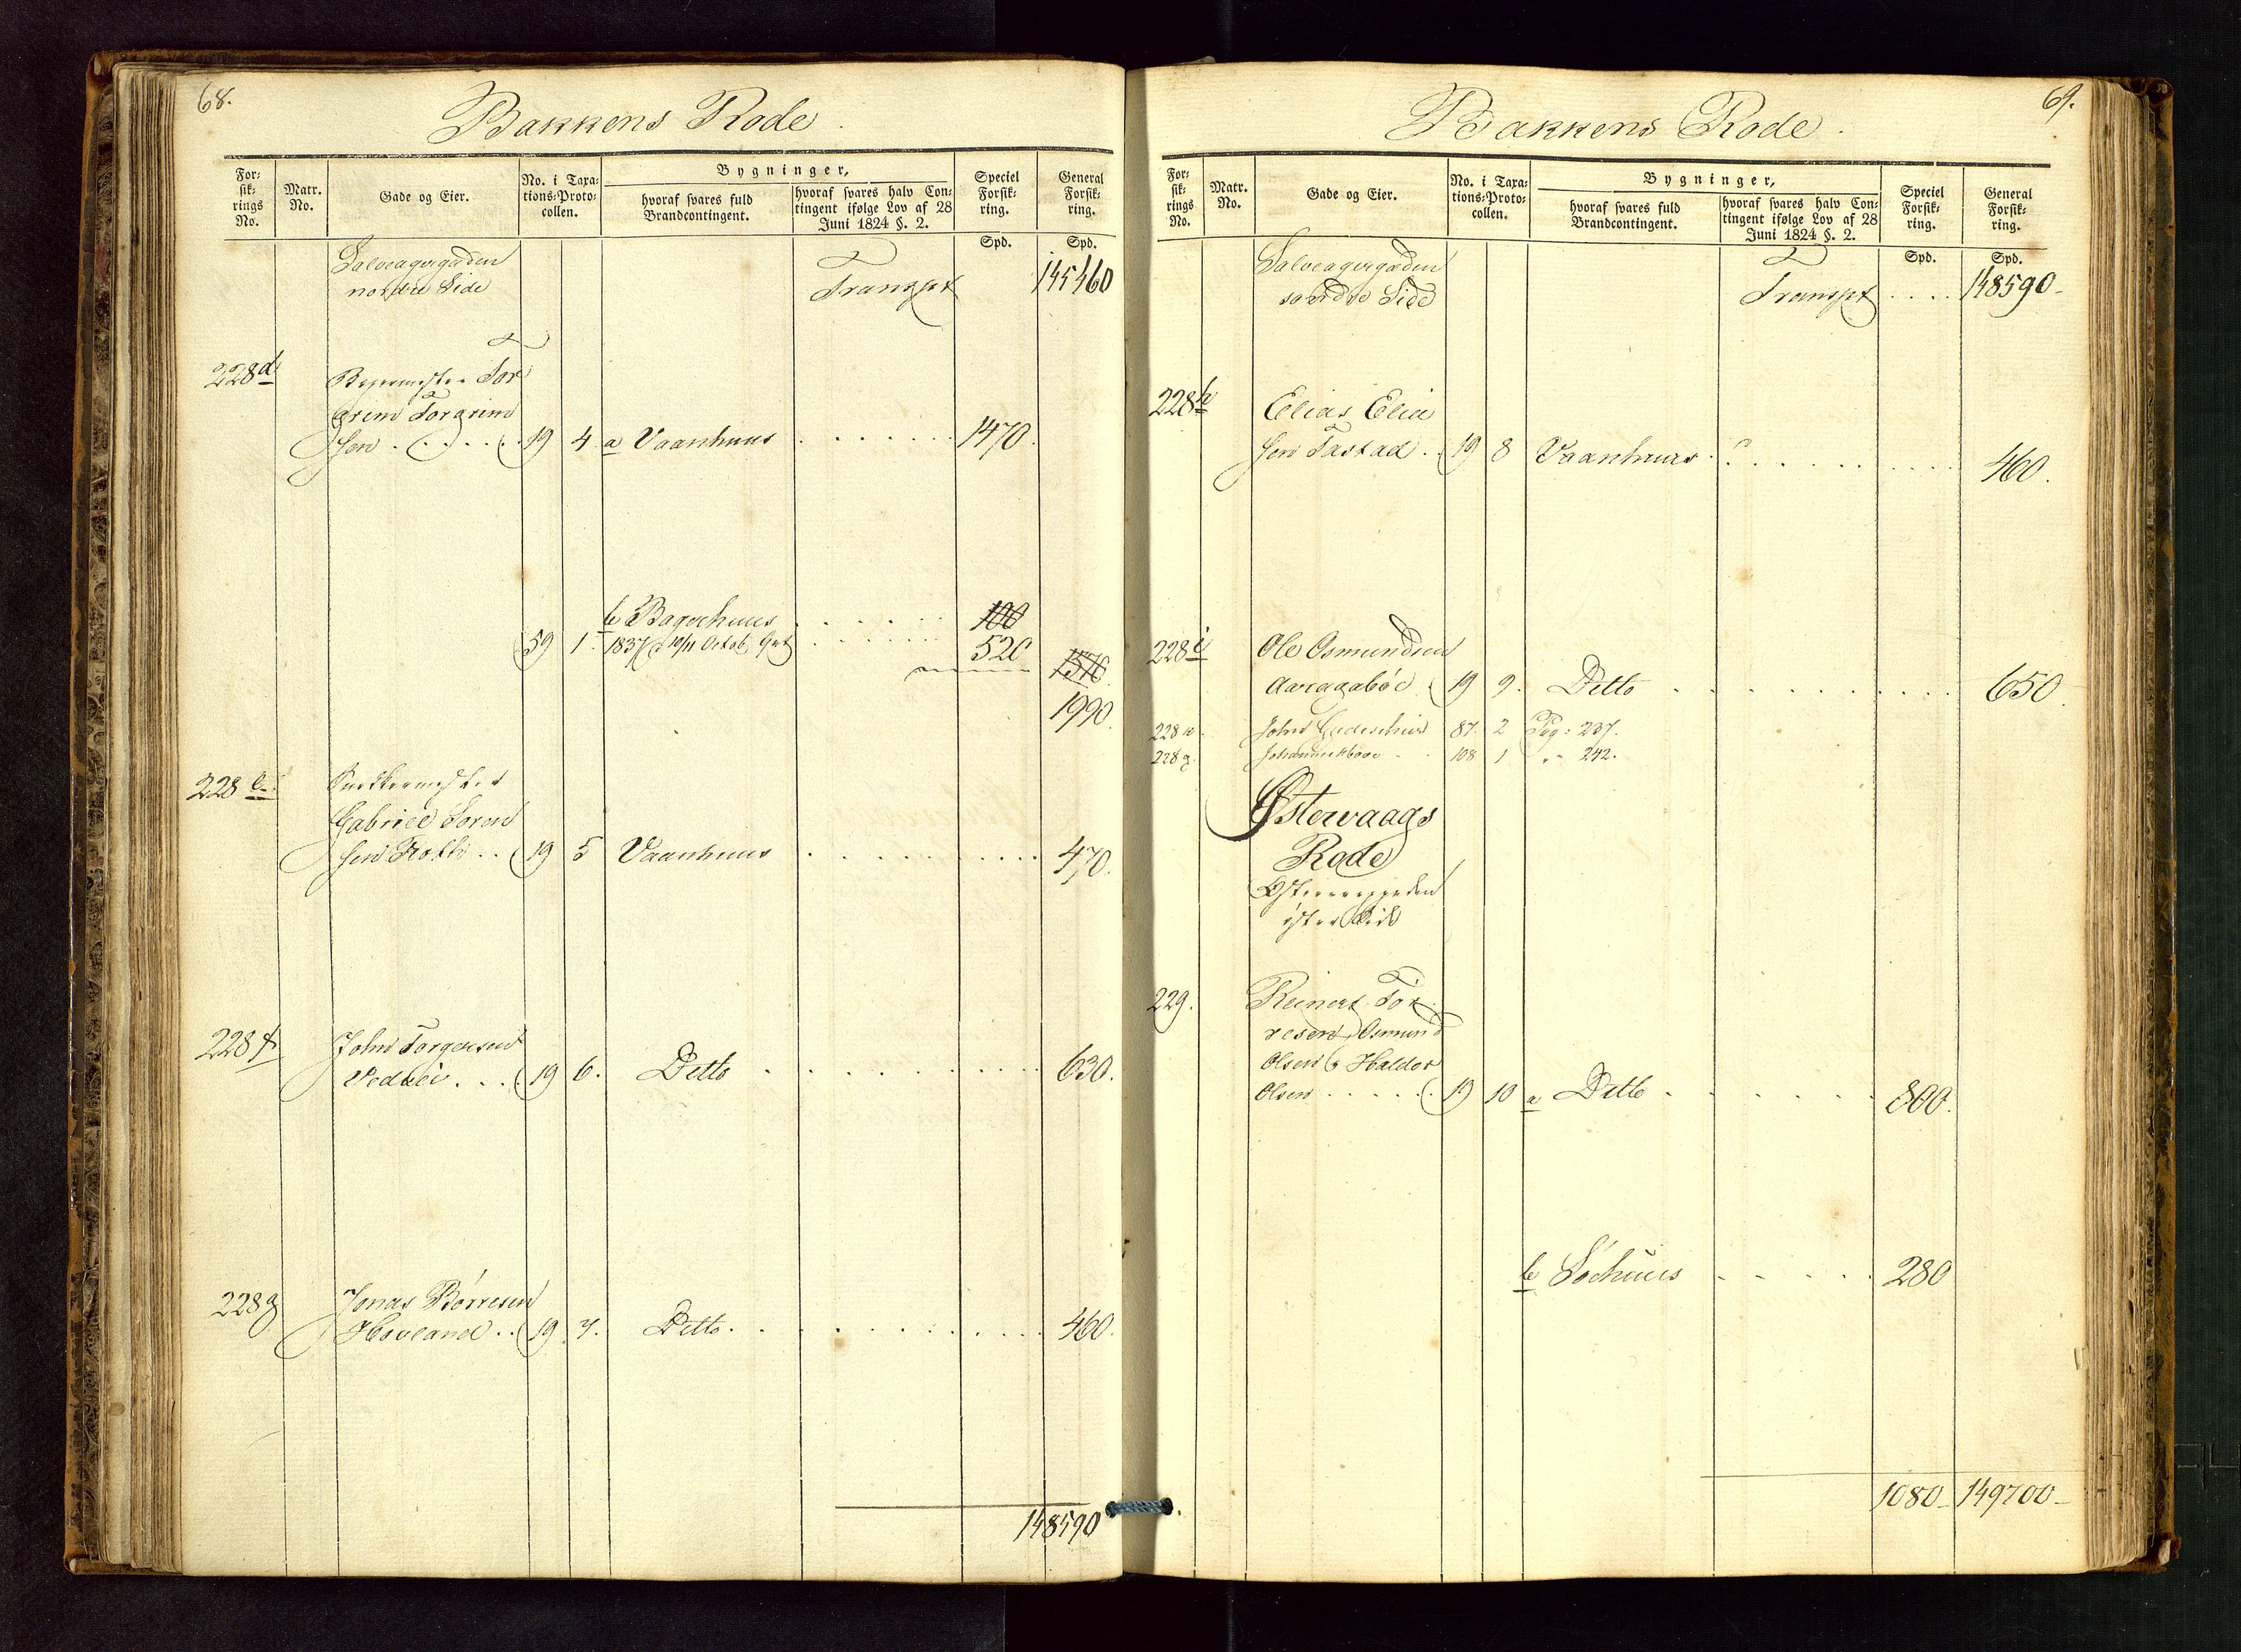 68.
Bakkens Rode.
For-
sik-
rings
No.
Matr.
No.
Gade og Eier.
No. i Taxa-
tions-Proto-
collen.
Bygninger,
hvoraf svares fuld
Brandcontingent.
hvoraf svares halv Con-
tingent ifølge Lov af 28
Juni 1824 §. 2.
Speciel
Forsik-
ring.
Spd.
General
Forsik-
ring.
Spd.
Salveagergaden
nordre Side
Transpt
145460
228d
Tor
grim Torgrim
sen . . . . 19 4. a Vaanhuus . . . . . . 1470.
b Bagerhuus . . . . . . 100
59 1. 1837 10/11 Octob. . . . . . 520
1570
1990.
228e
Snedkermester
Gabriel Soren
sen . . 19 5 Vaanhuus . . . . . . . . 470.
228f
John Torgersen
. . . 19 6. Ditto . . . . . . . . 630.
228g
Jonas Börresen
Hovland . . 19 7. Ditto . . . . . . . . 460.
148590
69.
Bakkens Rode.
For-
sik-
rings
No.
Matr.
No.
Gade og Eier.
No. i Taxa-
tions-Proto-
collen.
Bygninger,
hvoraf svares fuld
Brandcontingent.
hvoraf svares halv Con-
tingent ifølge Lov af 28
Juni 1824 §. 2.
Speciel
Forsik-
ring.
Spd.
General
Forsik-
ring.
Spd.
Salveagergaden
søndre Side
Transpt . . . . 148590-
228h
Elias Elia
sen Tastad . . 19 8 Vaanhuus . . . . . . . . 460.
228i
Ole Osmundsen
19 9. Ditto . . . . . . . . 650.
John 87. 2 Pag: 237.
228g. 108 1 " - 242.
Østervaags
Rode
Østervaaggaden
östre Side
229.
Reinert Tor-
resen, Osmund
Olsen & Haldor
Olsen . . . . . 19 10 a Ditto . . . . . . 800.
b Söehuus . . . . . 280
1080- 149700-